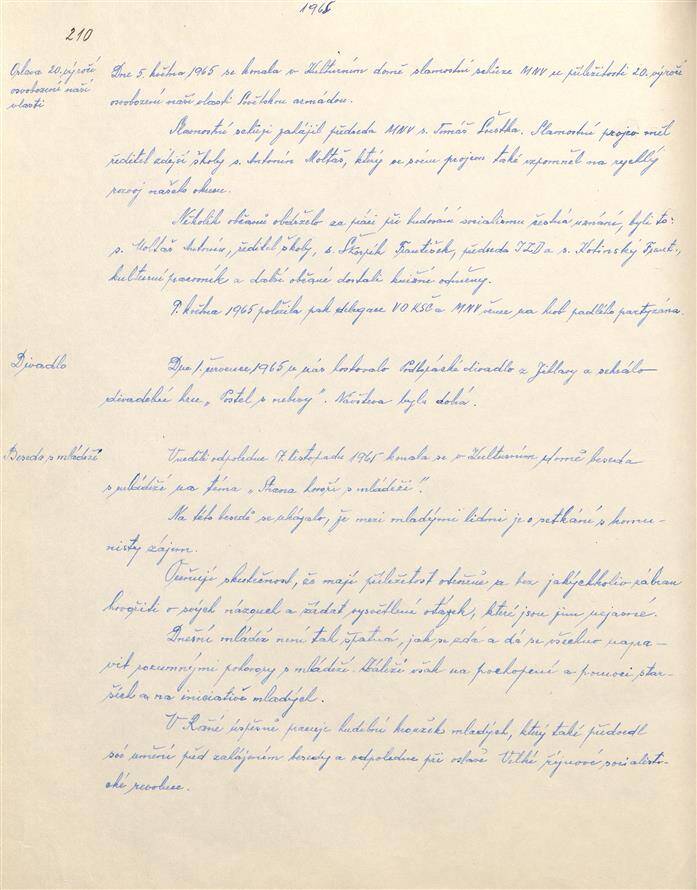 1965
210
Oslava 20. výročí
osvobození naší
vlasti
Dne 5. května 1965 se konala v Kulturním domě slavnostní schůze MNV u příležitosti 20. výročí
osvobození naší vlasti Sovětskou armádou.
Slavnostní schůzi zahájil předseda MNV s. Tomáš Šustka. Slavnostní projev měl
ředitel zdejší školy s. Antonín Moltaš, který ve svém projevu také vzpomněl na rychlý
rozvoj našeho okresu.
Několik občanů obdrželo za práci při budování socialismu čestná uznání, byli to:
s. Moltaš Antonín, ředitel školy, s. Škorpík František, předseda JZD a s. Kotinský Frant.,
kulturní pracovník a další občané dostali knižní odměny.
9. května 1965 položila pak delegace VO KSČ a MNV věnec na hrob padlého partyzána.
Divadlo
Dne 1. července 1965 u nás hostovalo Podhorácké divadlo z Jihlavy a sehrálo
divadelní hru „Postel s nebesy". Návštěva byla dobrá.
Beseda s mládeží
V neděli odpoledne 7. listopadu 1965 konala se v Kulturním domě beseda
s mládeží na téma „Strana hovoří s mládeží".
Na této besedě se ukázalo, že mezi mladými lidmi je o setkání s komu-
nisty zájem.
Oceňují skutečnost, že mají příležitost otevřeně a bez jakýchkoliv zábran
hovořiti o svých názorech a žádat vysvětlení otázek, které jsou jim nejasné.
Dnešní mládež není tak špatná, jak se zdá a dá se všechno napra-
vit rozumnými pohovory s mládeží. Záleží však na pochopení a pomoci star-
ších a na iniciativě mladých.
V Rožné úspěšně pracuje hudební kroužek mladých, který také předvedl
své umění před zahájením besedy a odpoledne při oslavě Velké říjnové socialisti-
cké revoluce.